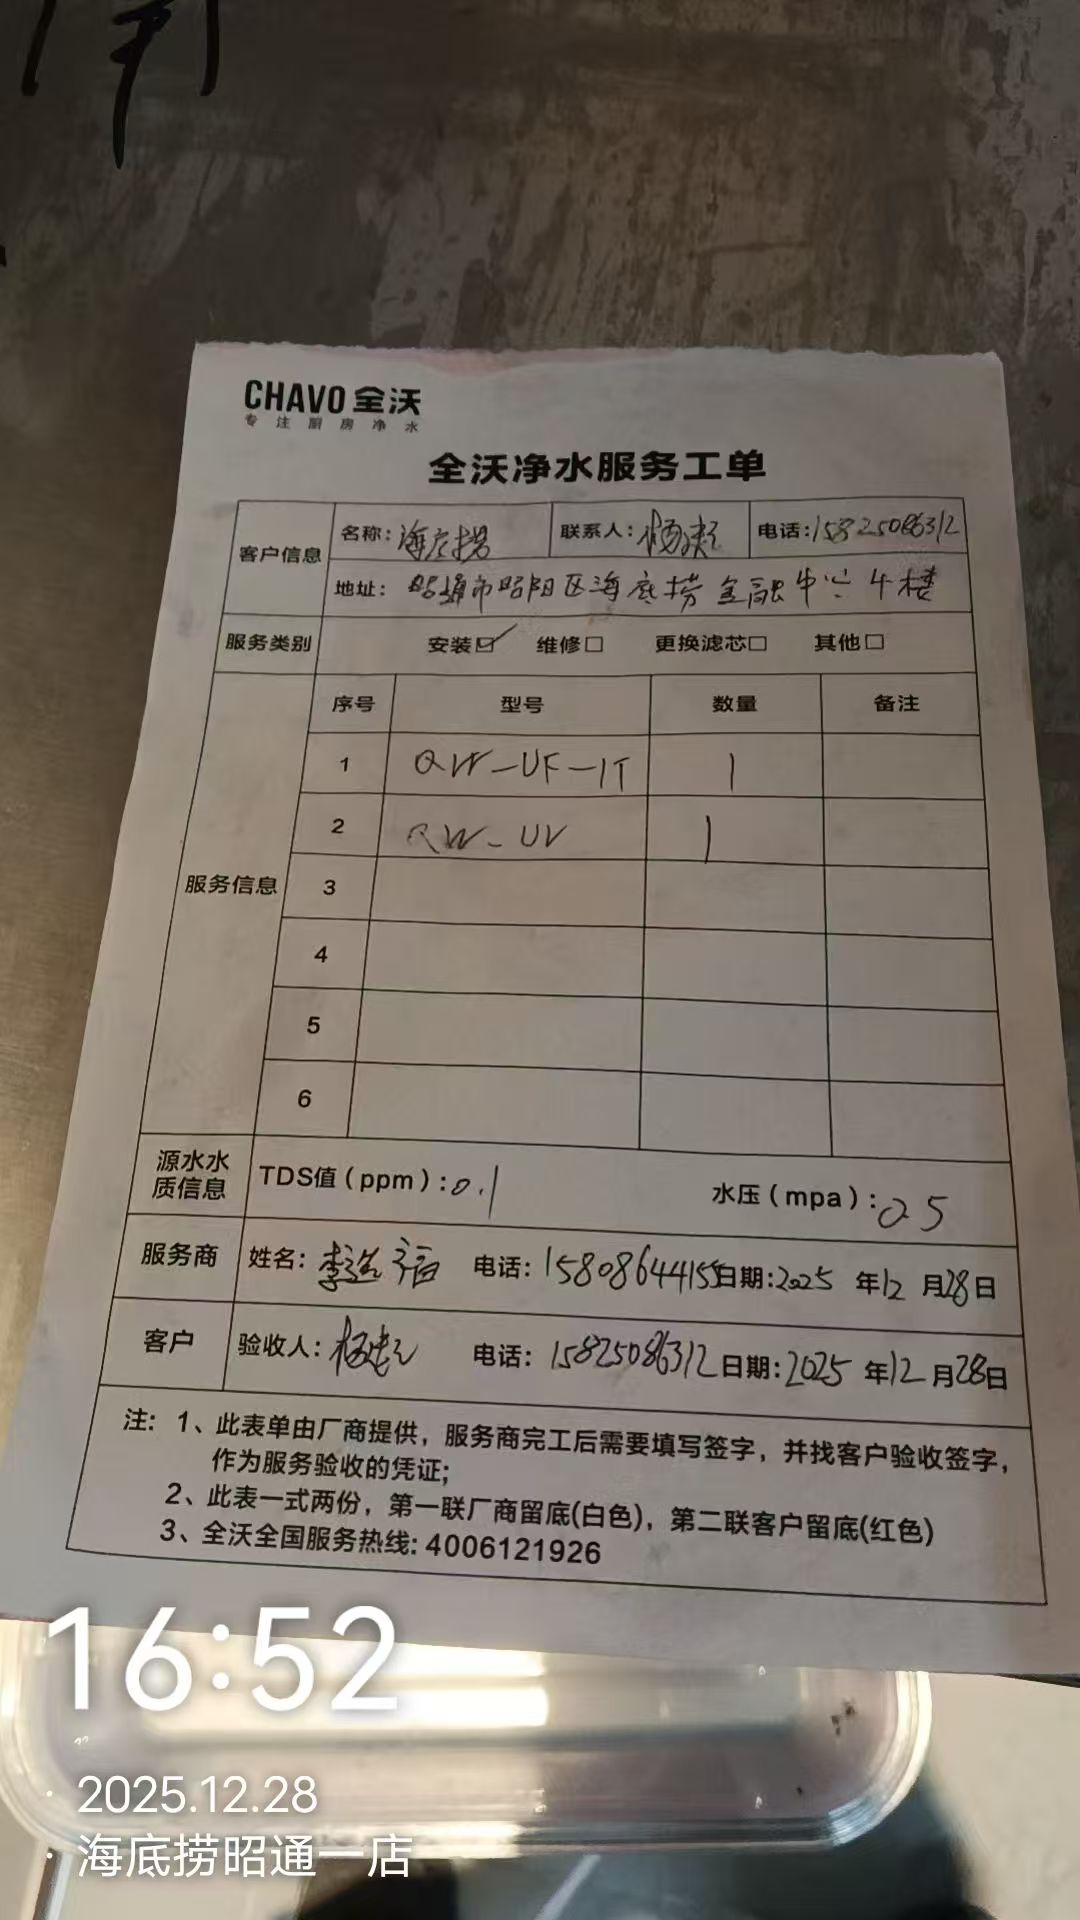 CHAVO 全沃
专注厨房净水
全沃净水服务工单
客户信息 名称: 海底捞 联系人: 杨 电话: 15825086312
地址: 昭通市昭阳区海底捞金融中心4楼
服务类别 安装☑ 维修□ 更换滤芯□ 其他□
服务信息 序号 型号 数量 备注
1 QW-UF-1T 1
2 QW-UV 1
3
4
5
6
源水水质信息 TDS值(ppm): 0.1 水压(mpa): 0.5
服务商 姓名: 李 福 电话: 15808644155 日期: 2025 年 12 月 28 日
客户 验收人: 杨 电话: 15825086312 日期: 2025 年 12 月 28 日
注: 1、此表单由厂商提供，服务商完工后需要填写签字，并找客户验收签字，
作为服务验收的凭证;
2、此表一式两份，第一联厂商留底(白色)，第二联客户留底(红色)
3、全沃全国服务热线: 4006121926
16:52
· 2025.12.28
· 海底捞昭通一店